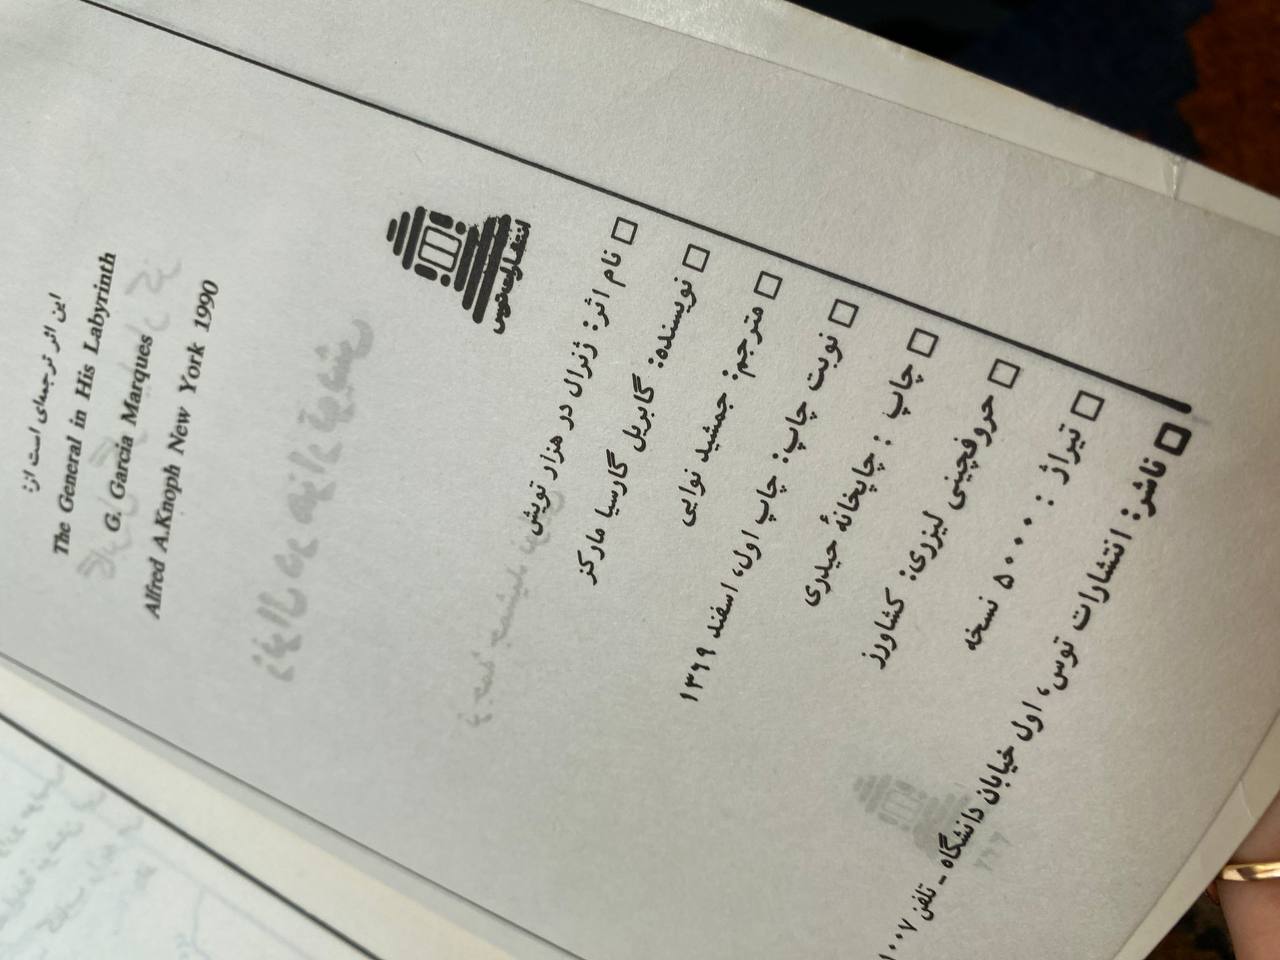 این اثر ترجمه‌ای است از:
The General in His Labyrinth
G. Garcia Marques
Alfred A.Knoph New York 1990
انتشارات توس
□ نام اثر: ژنرال در هزار تویش
□ نویسنده: گابریل گارسیا مارکز
□ مترجم: جمشید نوایی
□ نوبت چاپ: چاپ اول، اسفند ۱۳۶۹
□ چاپ : چاپخانهٔ حیدری
□ حروفچینی لیزری: کشاورز
□ تیراژ : ۵۰۰۰ نسخه
□ ناشر: انتشارات توس، اول خیابان دانشگاه - تلفن